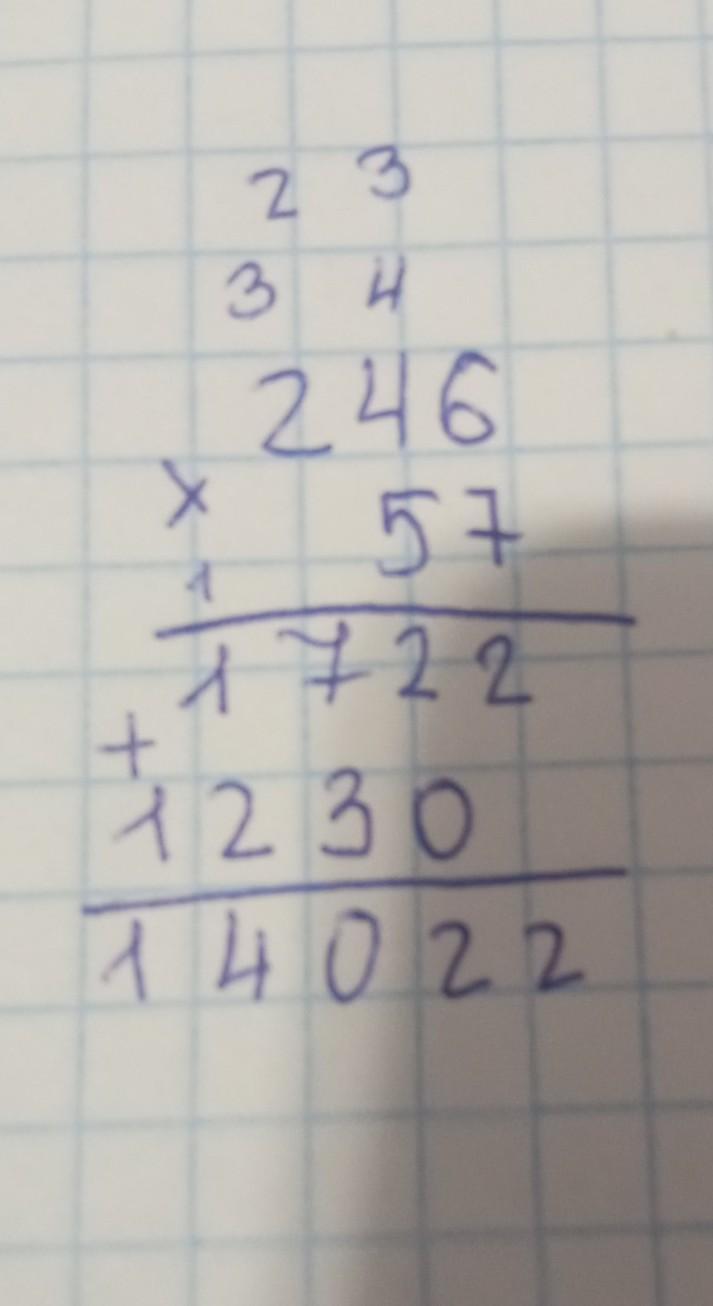 2 3
3 4
246
x 57
1
1722
+
1230
14022